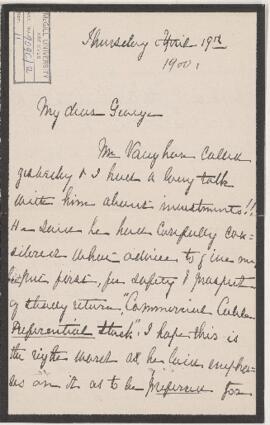 McGILL UNIVERSITY
Thursday April 19th
1900.
My dear George
Mr Vaughan called
yesterday & I had a long talk
with him about investments!!
He said he had carefully con-
sidered what advice to give me
first, for safety & prospect
of steady return, "Commercial Cable
Preferential Stock". I hope this is
the right word as he laid empha-
sis on it as to be preferred for